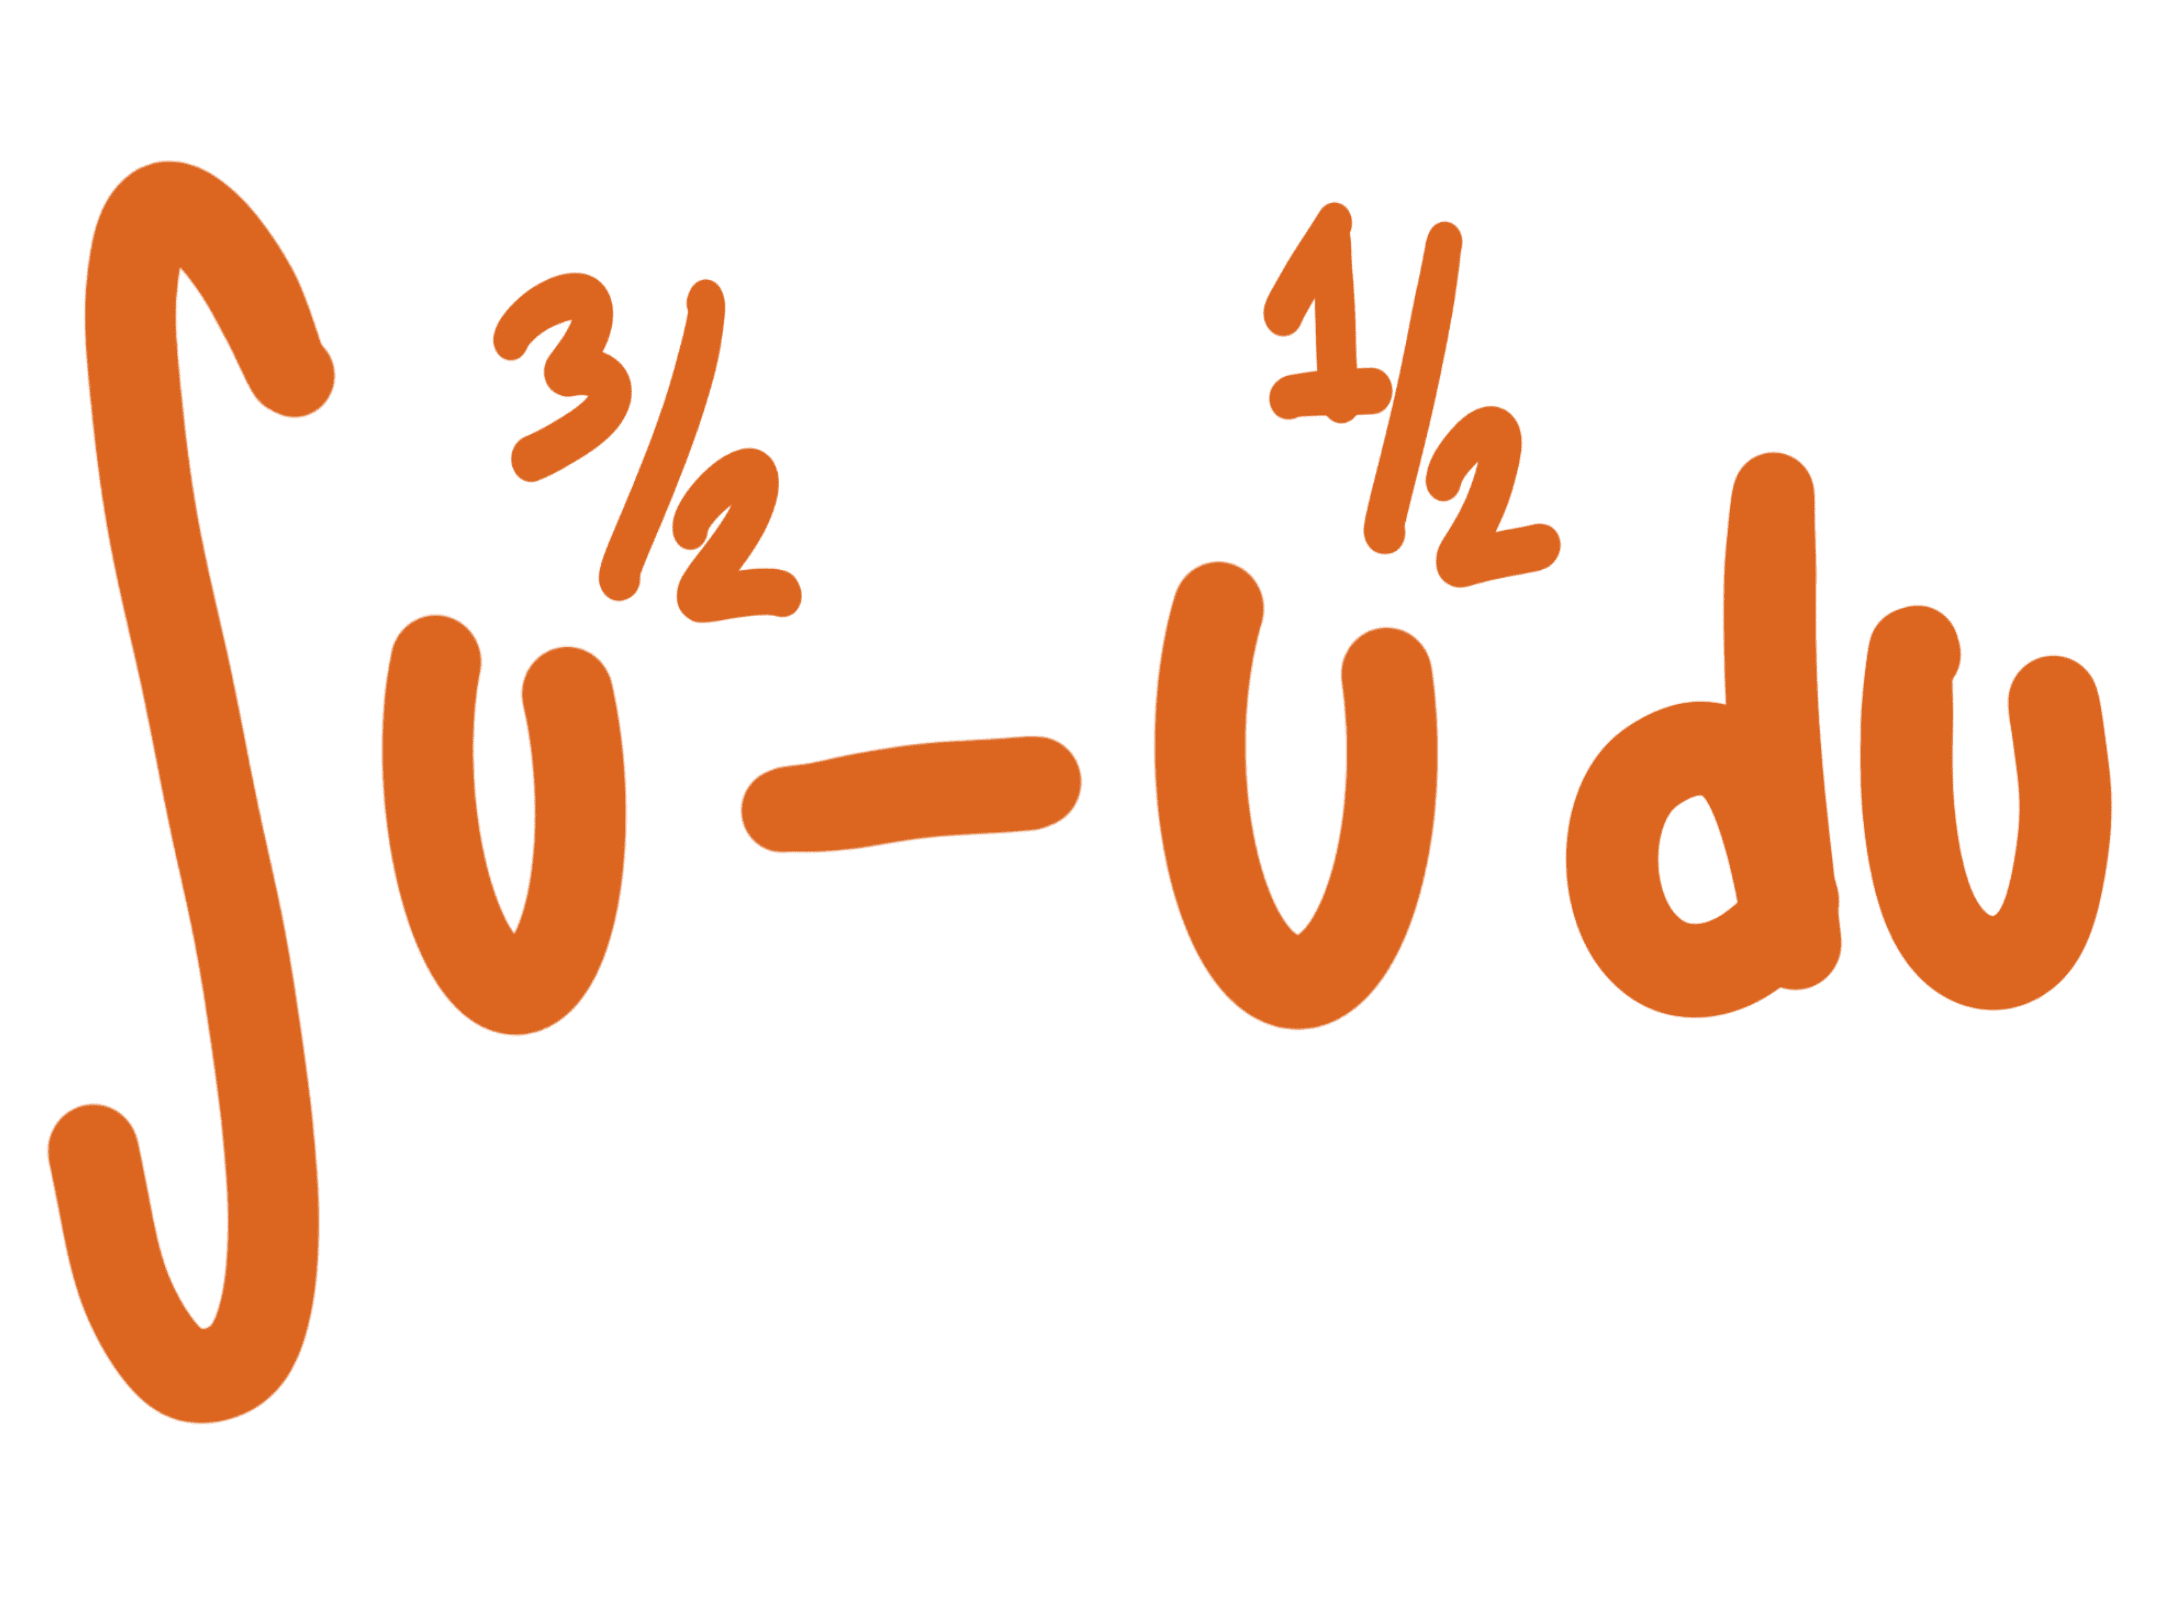 ∫ u^{3/2} - u^{1/2} du